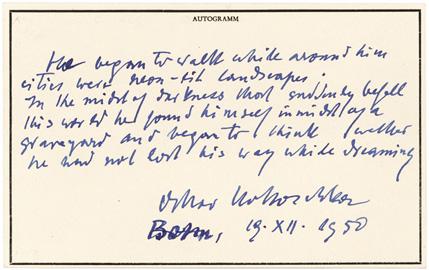 AUTOGRAMM
He began to walk while around him
cities were neon-lit landscapes.
In the midst of darkness that suddenly befell
this world he found himself in midst of a
graveyard and began to think wether
he had not lost his way while dreaming
Oskar Kokoschka
Bonn, 19. XII. 1950